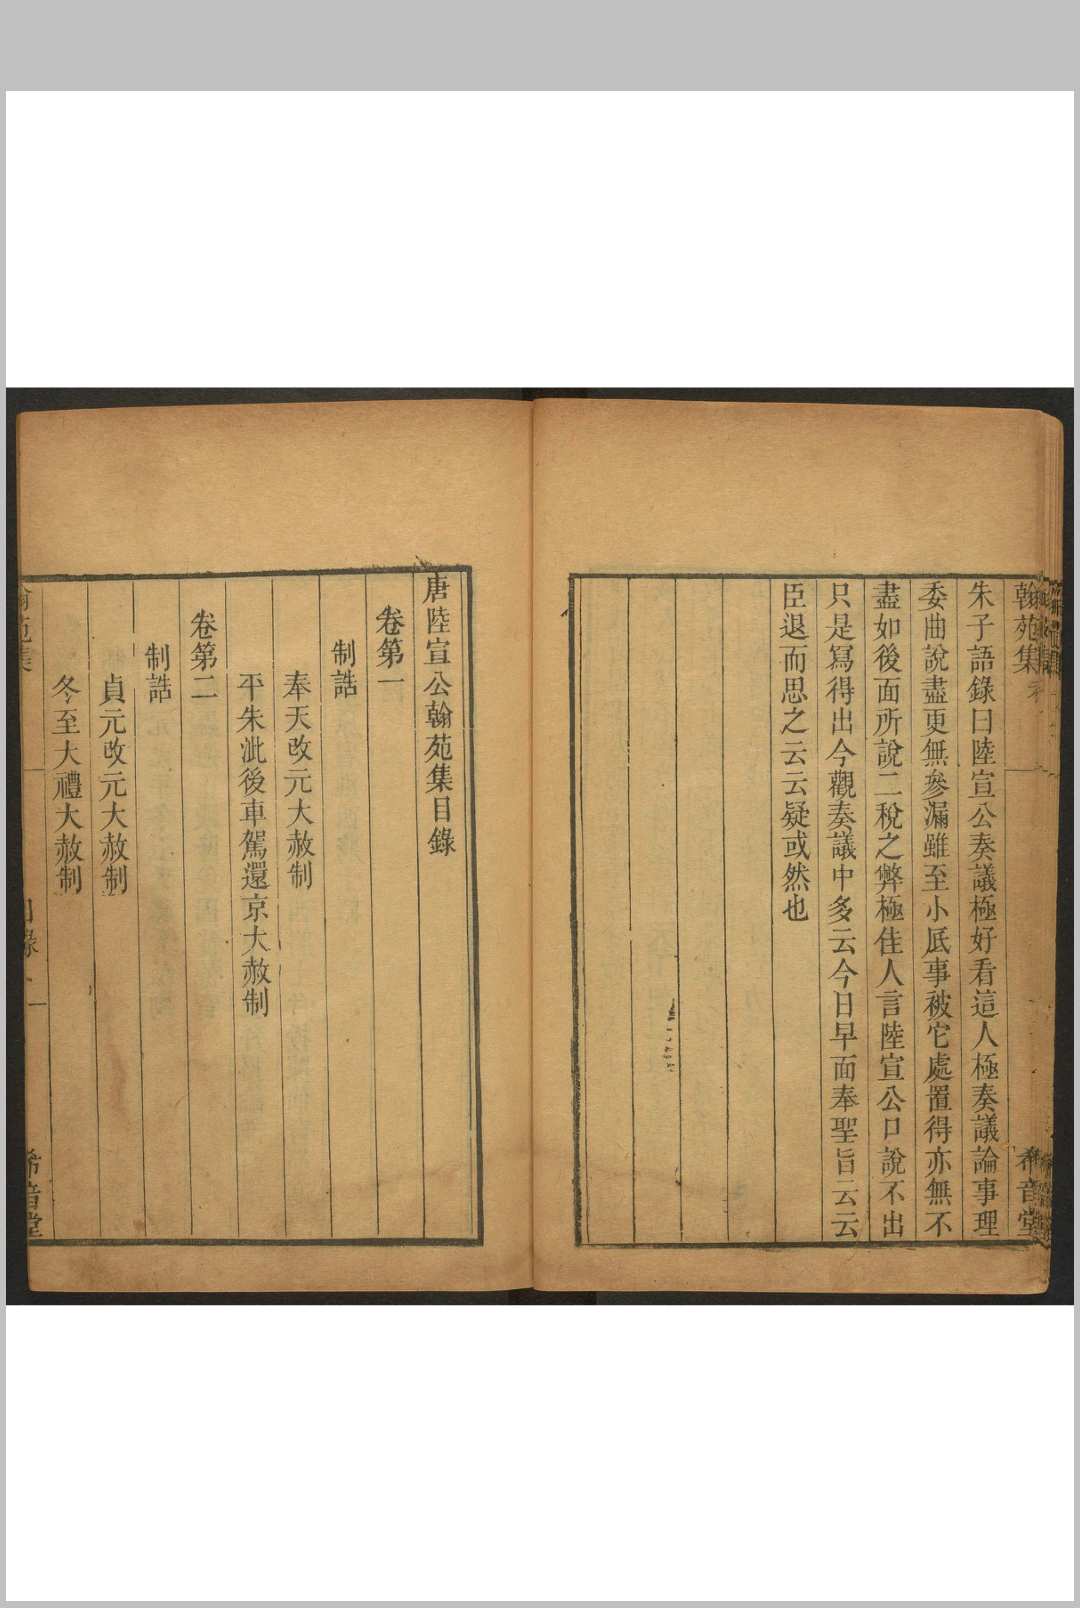 翰苑集
希音堂
朱子語錄曰陸宣公奏議極好看這人極奏議論事理
委曲說盡更無參漏雖至小底事被它處置得亦無不
盡如後面所說二稅之弊極佳人言陸宣公口說不出
只是寫得出今觀奏議中多云今日早面奉聖旨云云
臣退而思之云云疑或然也
唐陸宣公翰苑集目錄
卷第一
制誥
奉天改元大赦制
平朱泚後車駕還京大赦制
卷第二
制誥
貞元改元大赦制
冬至大禮大赦制
翰苑集
目錄
一
希音堂